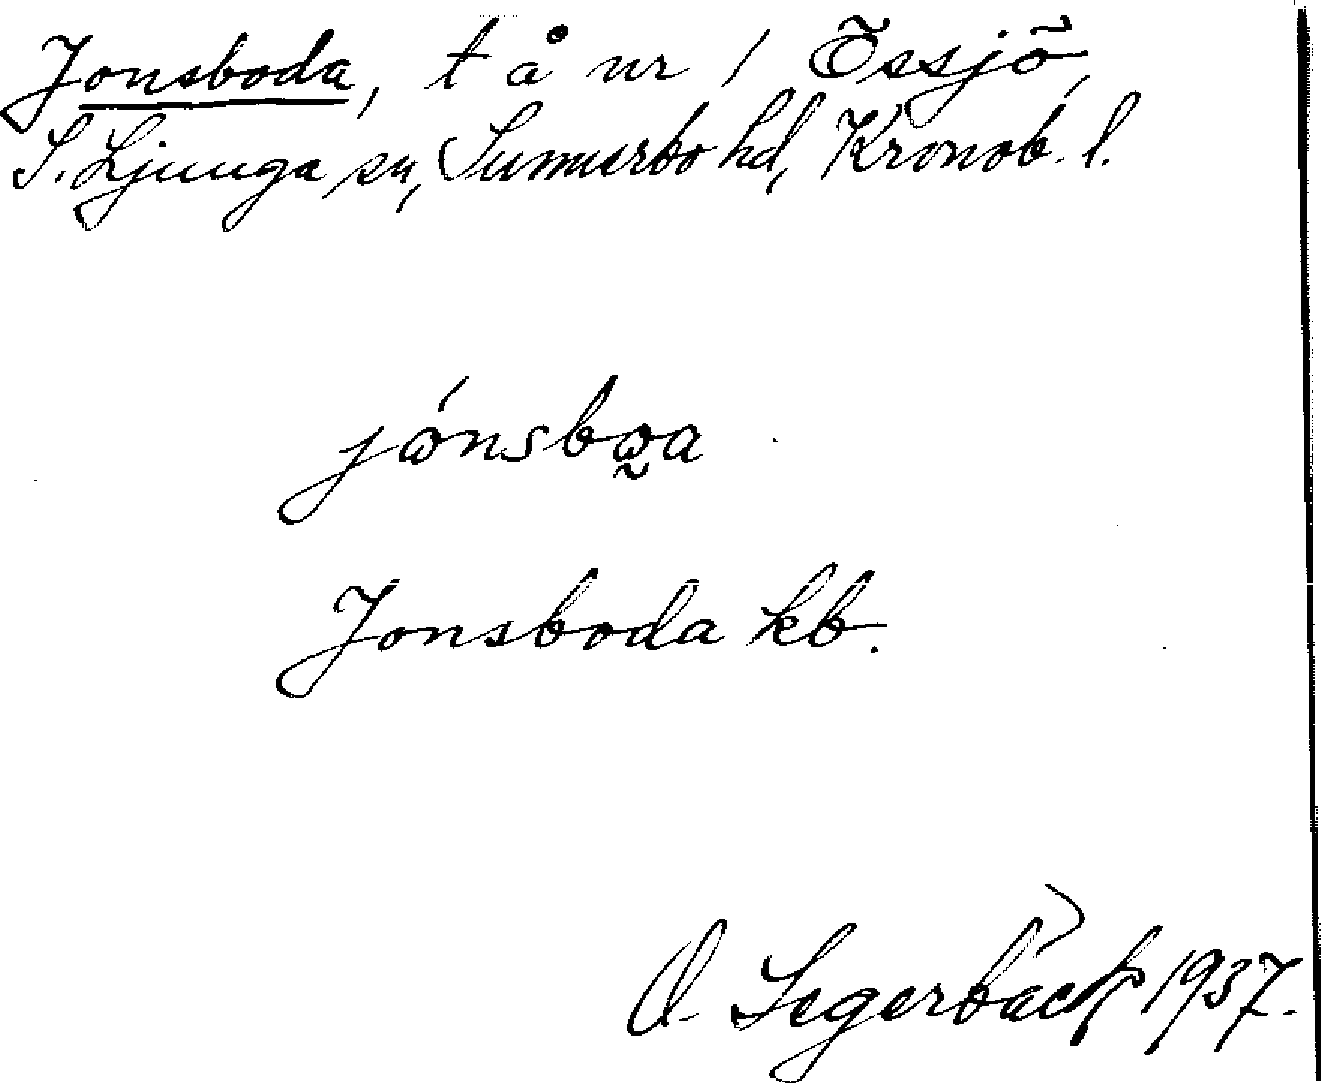 Jonsboda, t å nr 1 Össjö,
S. Ljunga sn, Sunnerbo hd, Kronob. l.
jónsboa
Jonsboda kb.
O. Segerbäck 1937.